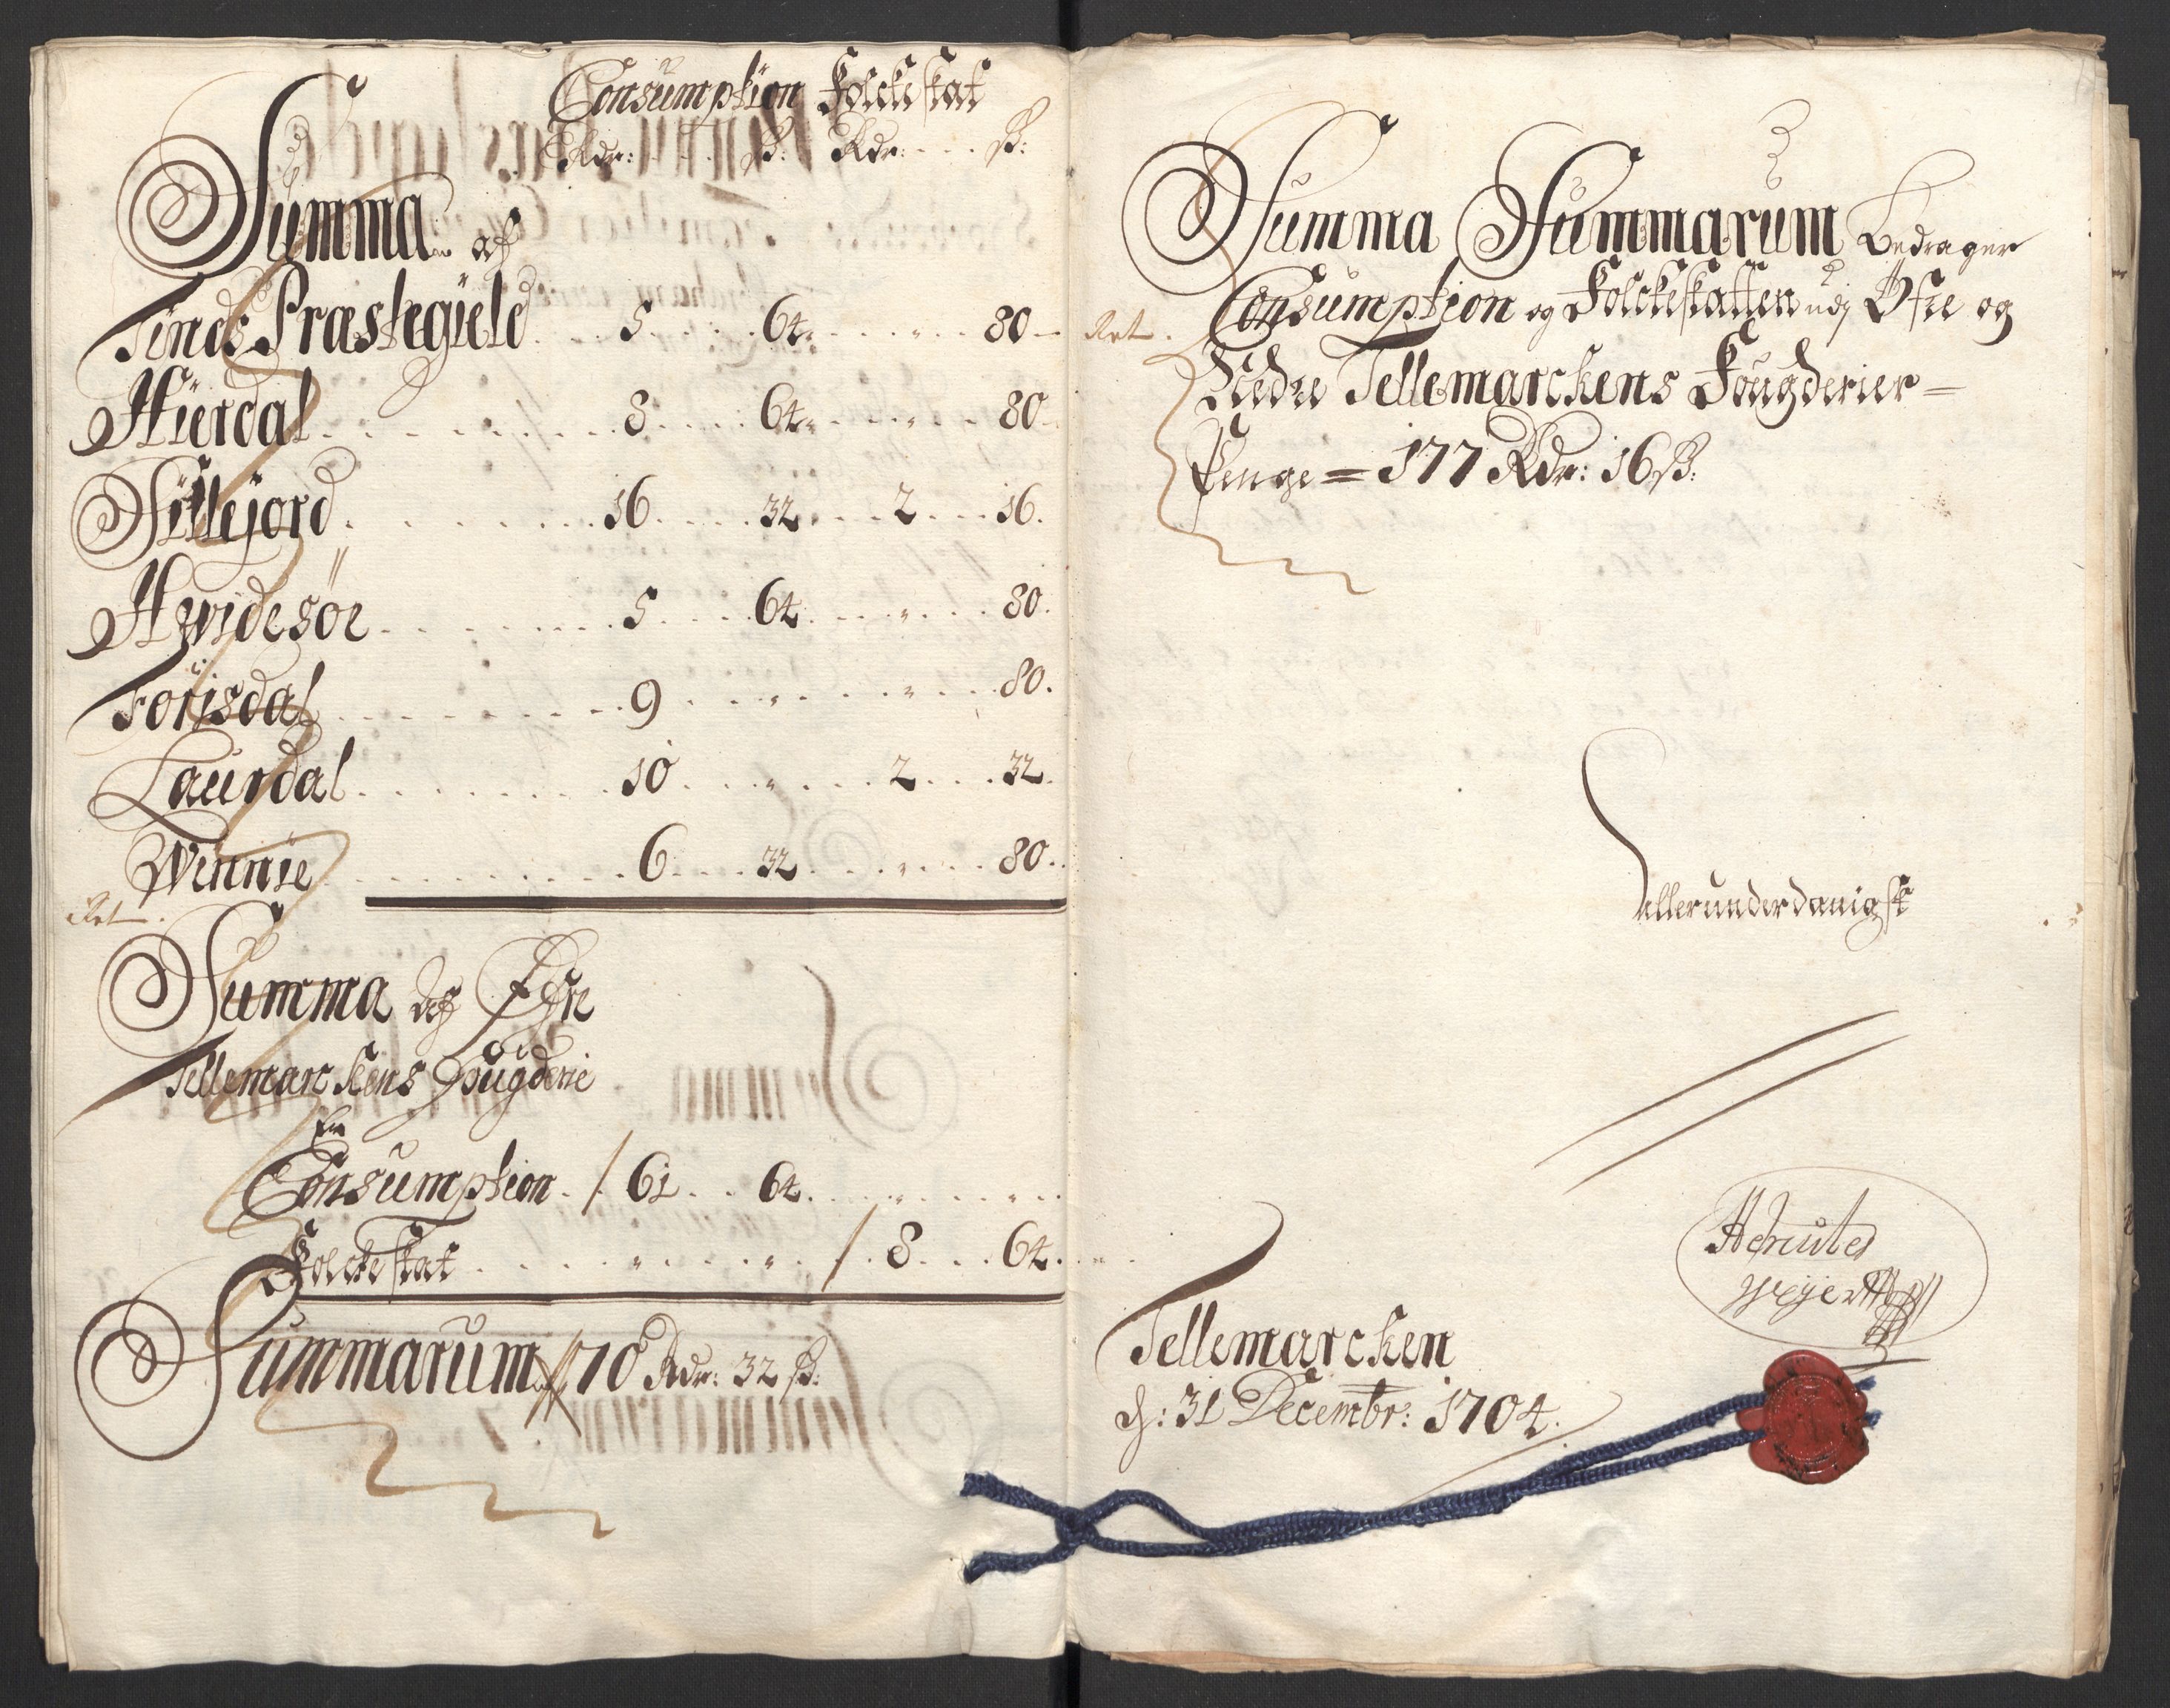 Consumption Folckeskat
Rdr: . . . ß: Rdr: . . . ß:
Summa af
Tinds Præstegield . . 5 . . . 64 . . . " . . 80
Hierdal . . . 8 . . . 64 . . . " . . 80
Sillejord . . . 16 . . . 32 . . . 2 . . . 16.
Hwidesöe . . . 5 . . . 64 . . . " . . . 80.
Forisdal . . . 9 . . . " . . . " . . . 80.
Laurdal . . . 10 . . . " . . . 2 . . . 32.
Winnie . . . 6 . . . 32 . . . " . . . 80.
Ret.
Summa af Öfre
Tellemarckens Fougderie
Consumption . / 61 . . 64 . . . " . . .
Folckeskat . . . " . . . " . . / 8 . . . 64 . .
Summarum 70 Rdr: 32 ß:
Summa Summarum Bedrager
Ret. Consumption og Folckeskatten udj Öfre og
Nedre Tellemarckens Fougderier =
Penge = 177 Rdr: 16 ß:
Allerunderdanigst
Hercules
Weyer
Tellemarcken
d: 31 Decembr: 1704.